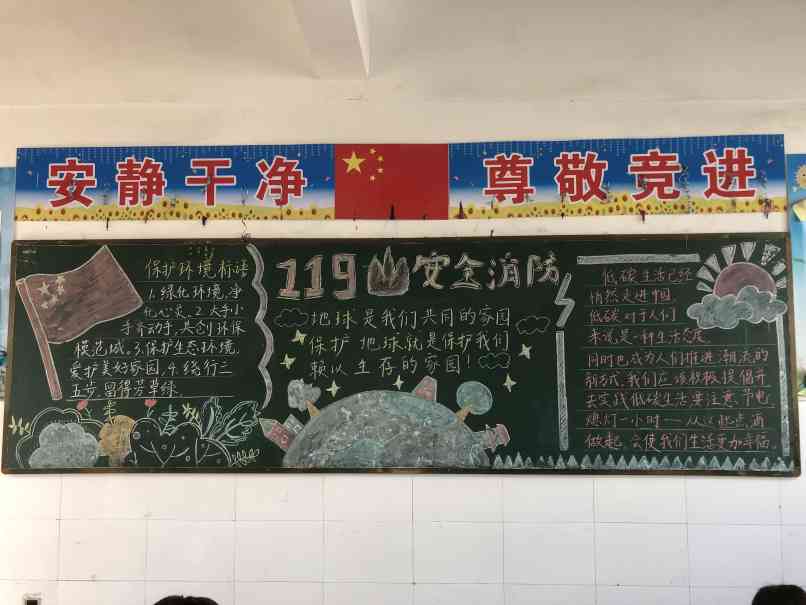 安静干净
尊敬竞进
保护环境标语
1.绿化环境,净
化心灵.2.大手小
手齐动手,共创环保
模范城.3.保护生态环境,
爱护美好家园.4.绕行三
五步,留得芳草绿.
119安全消防
地球是我们共同的家园
保护地球就是保护我们
赖以生存的家园!
低碳生活已经
悄然走进中国
低碳对于人们
来说是一种生活态度
同时也成为人们推进潮流的
新方式,我们应该积极提倡并
去实践低碳生活要注意节电
熄灯一小时——从这些点滴
做起,会使我们生活更加幸福.